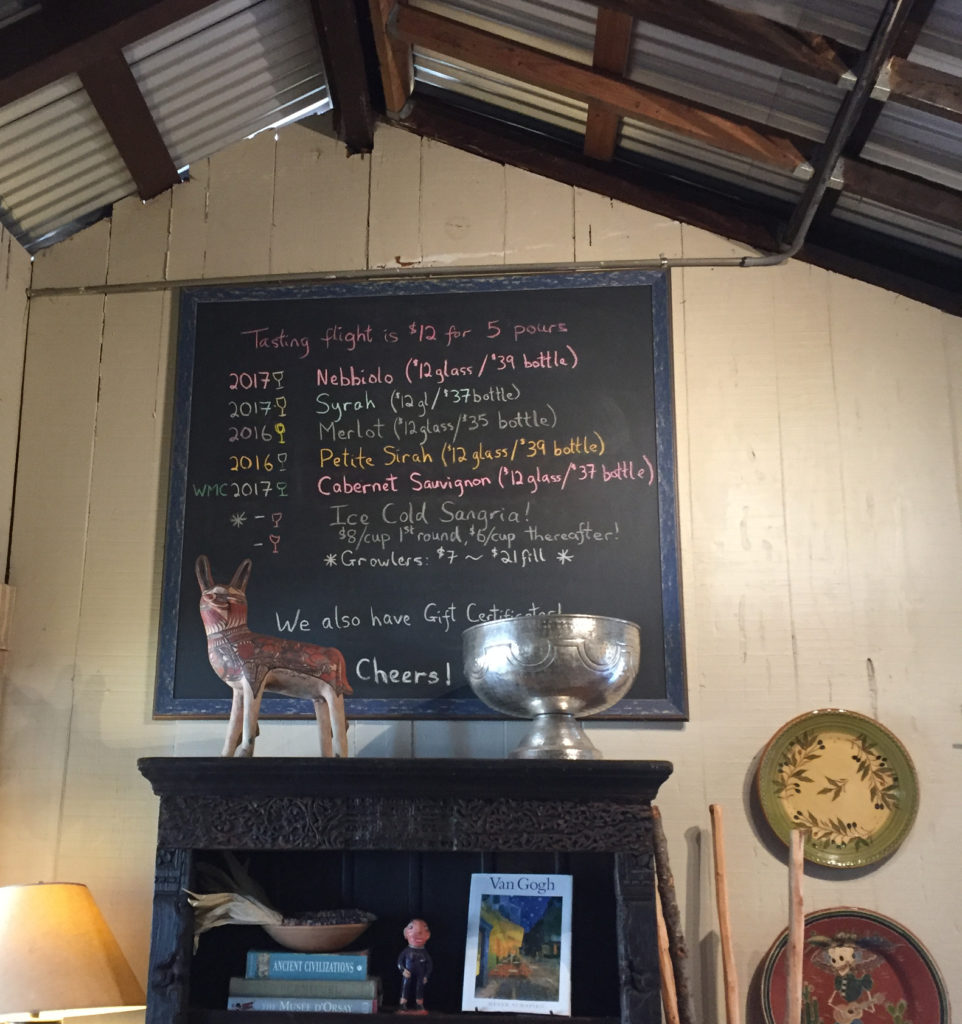 Tasting flight is $12 for 5 pours
2017 Nebbiolo ($12 glass / $39 bottle)
2017 Syrah ($12 gl / $37 bottle)
2016 Merlot ($12 glass / $35 bottle)
2016 Petite Sirah ($12 glass / $39 bottle)
WMC 2017 Cabernet Sauvignon ($12 glass / $37 bottle)
* - Ice Cold Sangria!
- $8/cup 1st round, $6/cup thereafter!
* Growlers: $7 ~ $21 fill *
We also have Gift Certificates!
Cheers!
VAN GOGH
ANCIENT CIVILIZATIONS
THE MUSÉE D'ORSAY